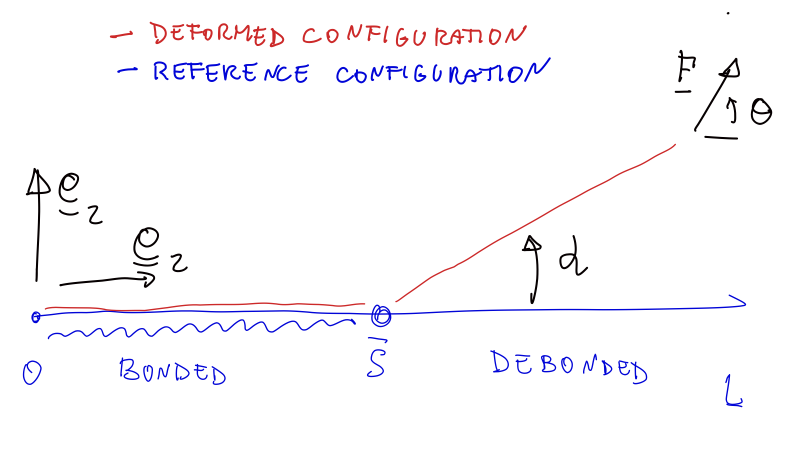 — DEFORMED CONFIGURATION
— REFERENCE CONFIGURATION
F
θ
e2
e2
α
O
BONDED
S̄
DEBONDED
L